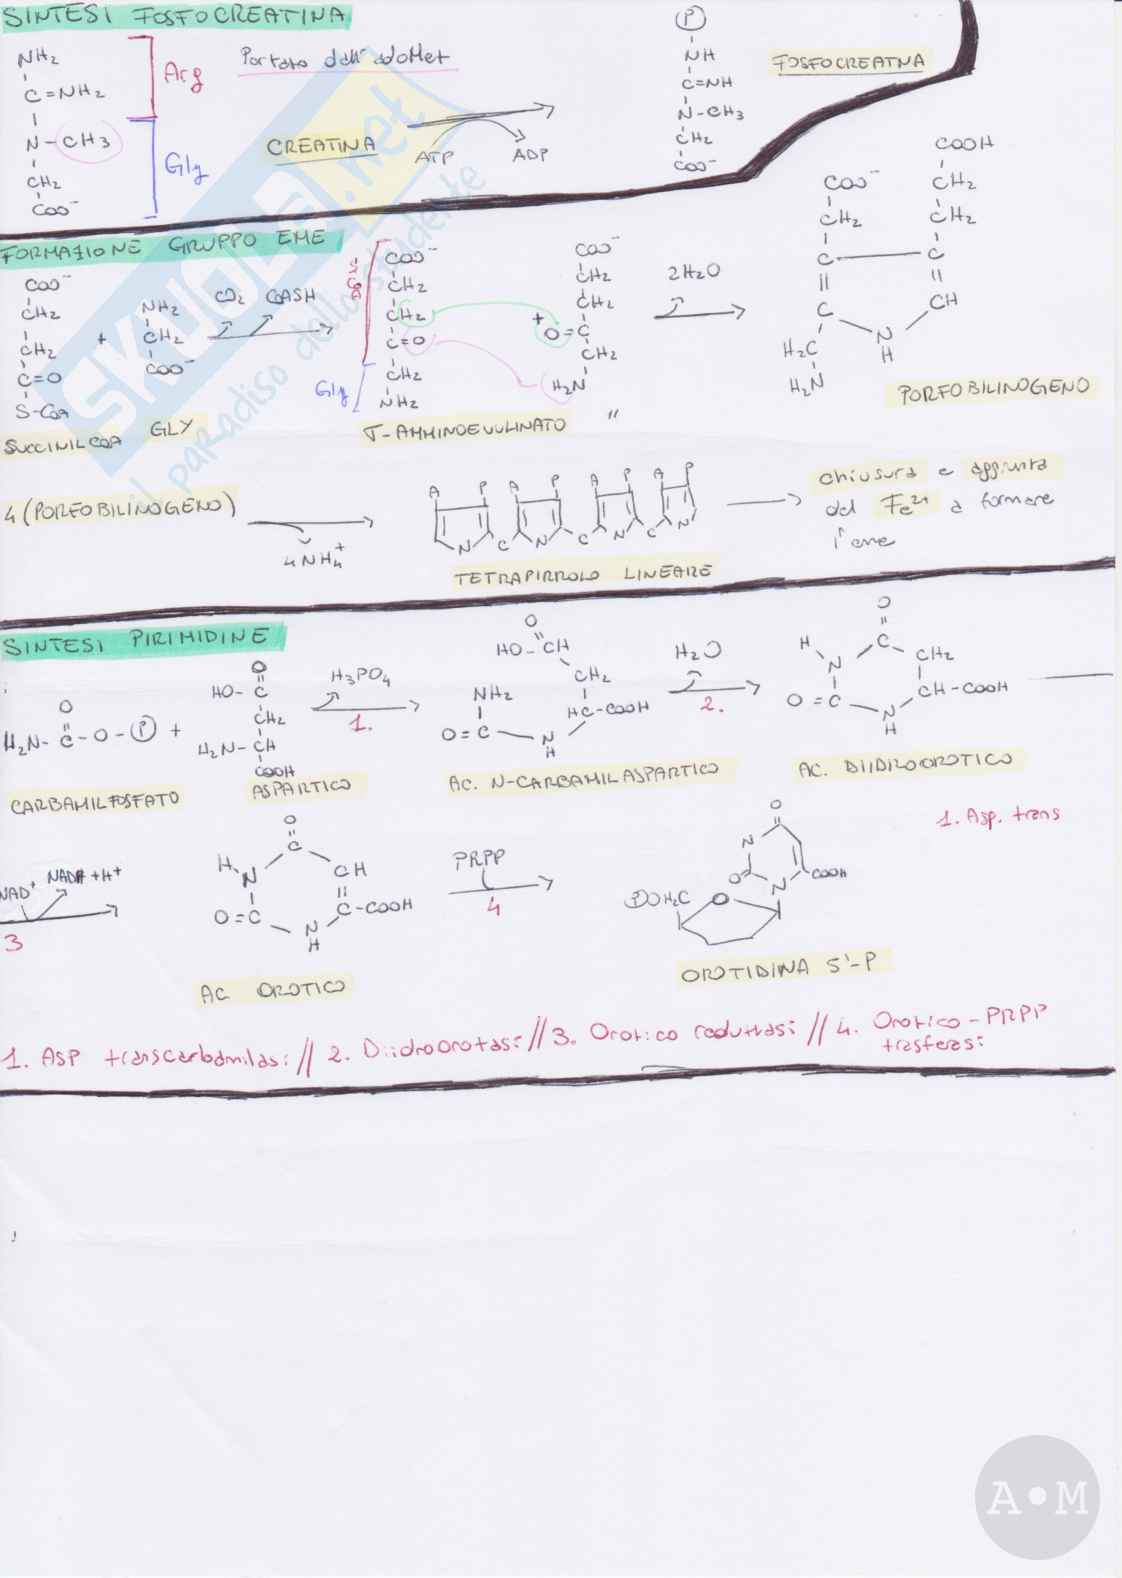 SINTESI FOSFOCREATINA
NH2
C=NH2
N-CH3
CH2
COO-
Arg
Gly
Portato dall'adoMet
CREATINA
ATP
ADP
P
NH
C=NH
N-CH3
CH2
COO-
FOSFOCREATNA
FORMAZIONE GRUPPO EME
COO-
CH2
CH2
C=O
S-CoA
SUCCINILCOA
+
NH2
CH2
COO-
GLY
CO2
COASH
COO-
CH2
CH2
C=O
CH2
NH2
Gly
COO-
CH2
CH2
+
O=C
CH2
H2N
"
2H2O
COO-
CH2
C
C
H2C
H2N
COOH
CH2
CH2
C
CH
N
H
PORFOBILINOGENO
4 (PORFOBILINOGENO)
4NH4+
A P A P A P A P
N C N C N C N
TETRAPIRROLO LINEARE
chiusura e aggiunta
del Fe2+ a formare
l'eme
SINTESI PIRIMIDINE
O
H2N-C-O-P
+
CARBAMILFOSFATO
O
HO-C
CH2
H2N-CH
COOH
ASPARTICO
H3PO4
1.
O
HO-CH
CH2
HC-COOH
NH2
O=C
N
H
AC. N-CARBAMILASPARTICO
H2O
2.
O
C
H
N
CH2
O=C
CH-COOH
N
H
AC. DIIDROOROTICO
1. Asp. trans
NAD+
NADH+H+
3
O
C
H
N
CH
O=C
C-COOH
N
H
AC OROTICO
PRPP
4
O
N
O
N
COOH
POH2C
O
OROTIDINA 5'-P
1. Asp transcarbamilasi // 2. Diidroorotasi // 3. Orotico reduttasi // 4. Orotico-PRPP
trasferasi
SKUOLA.net
il paradiso dello studente
A•M